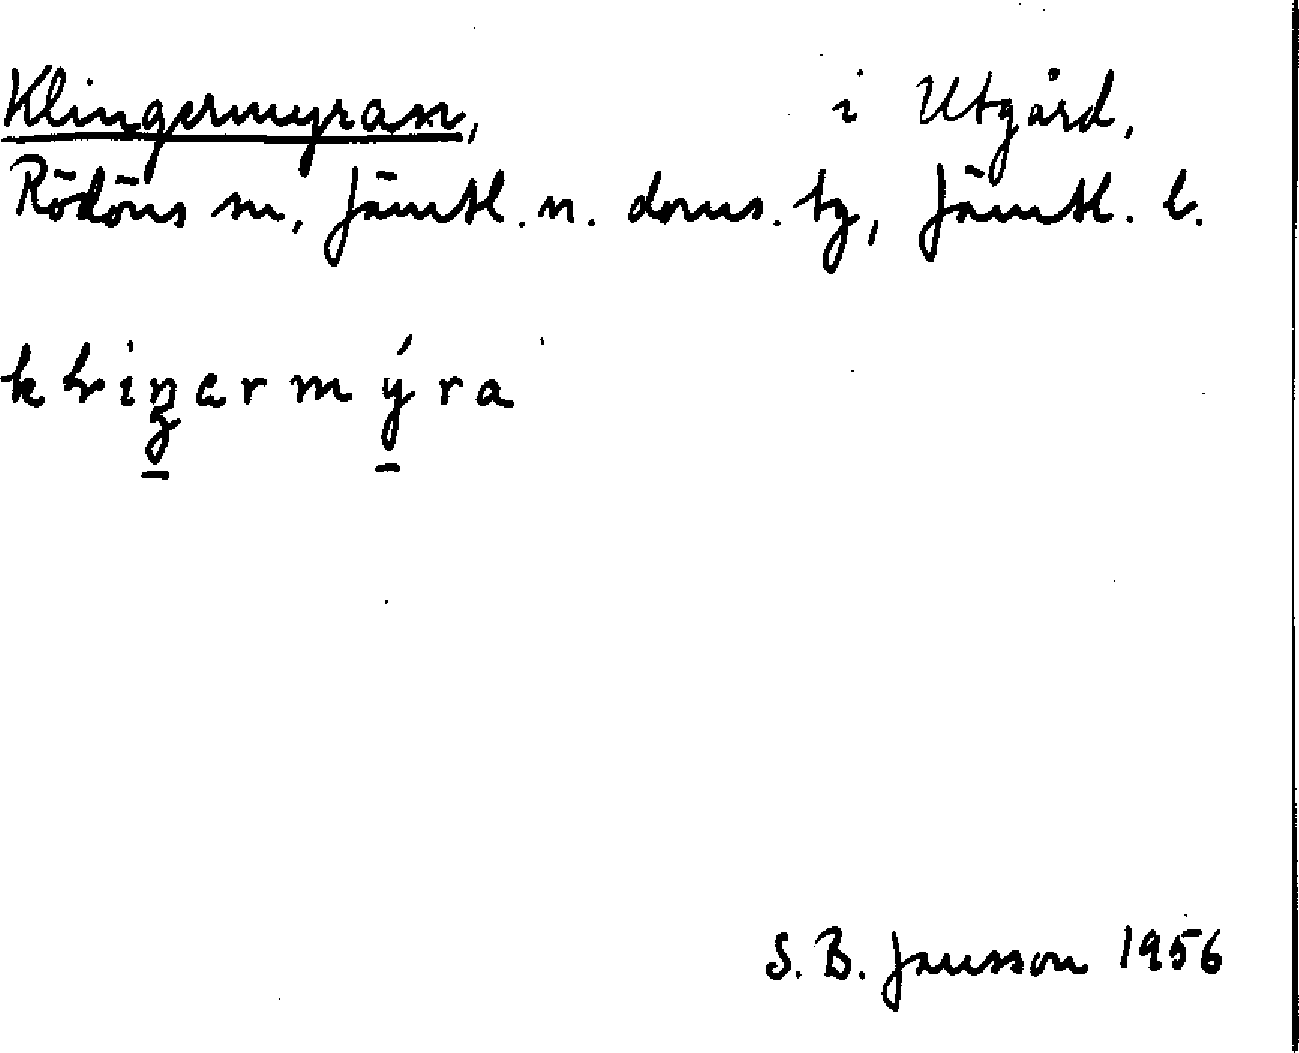 Klingermyran, i Utgård,
Rödöns sn, Jämtl. n. doms. tg, Jämtl. l.
kliŋermýra
S. B. Jansson 1956